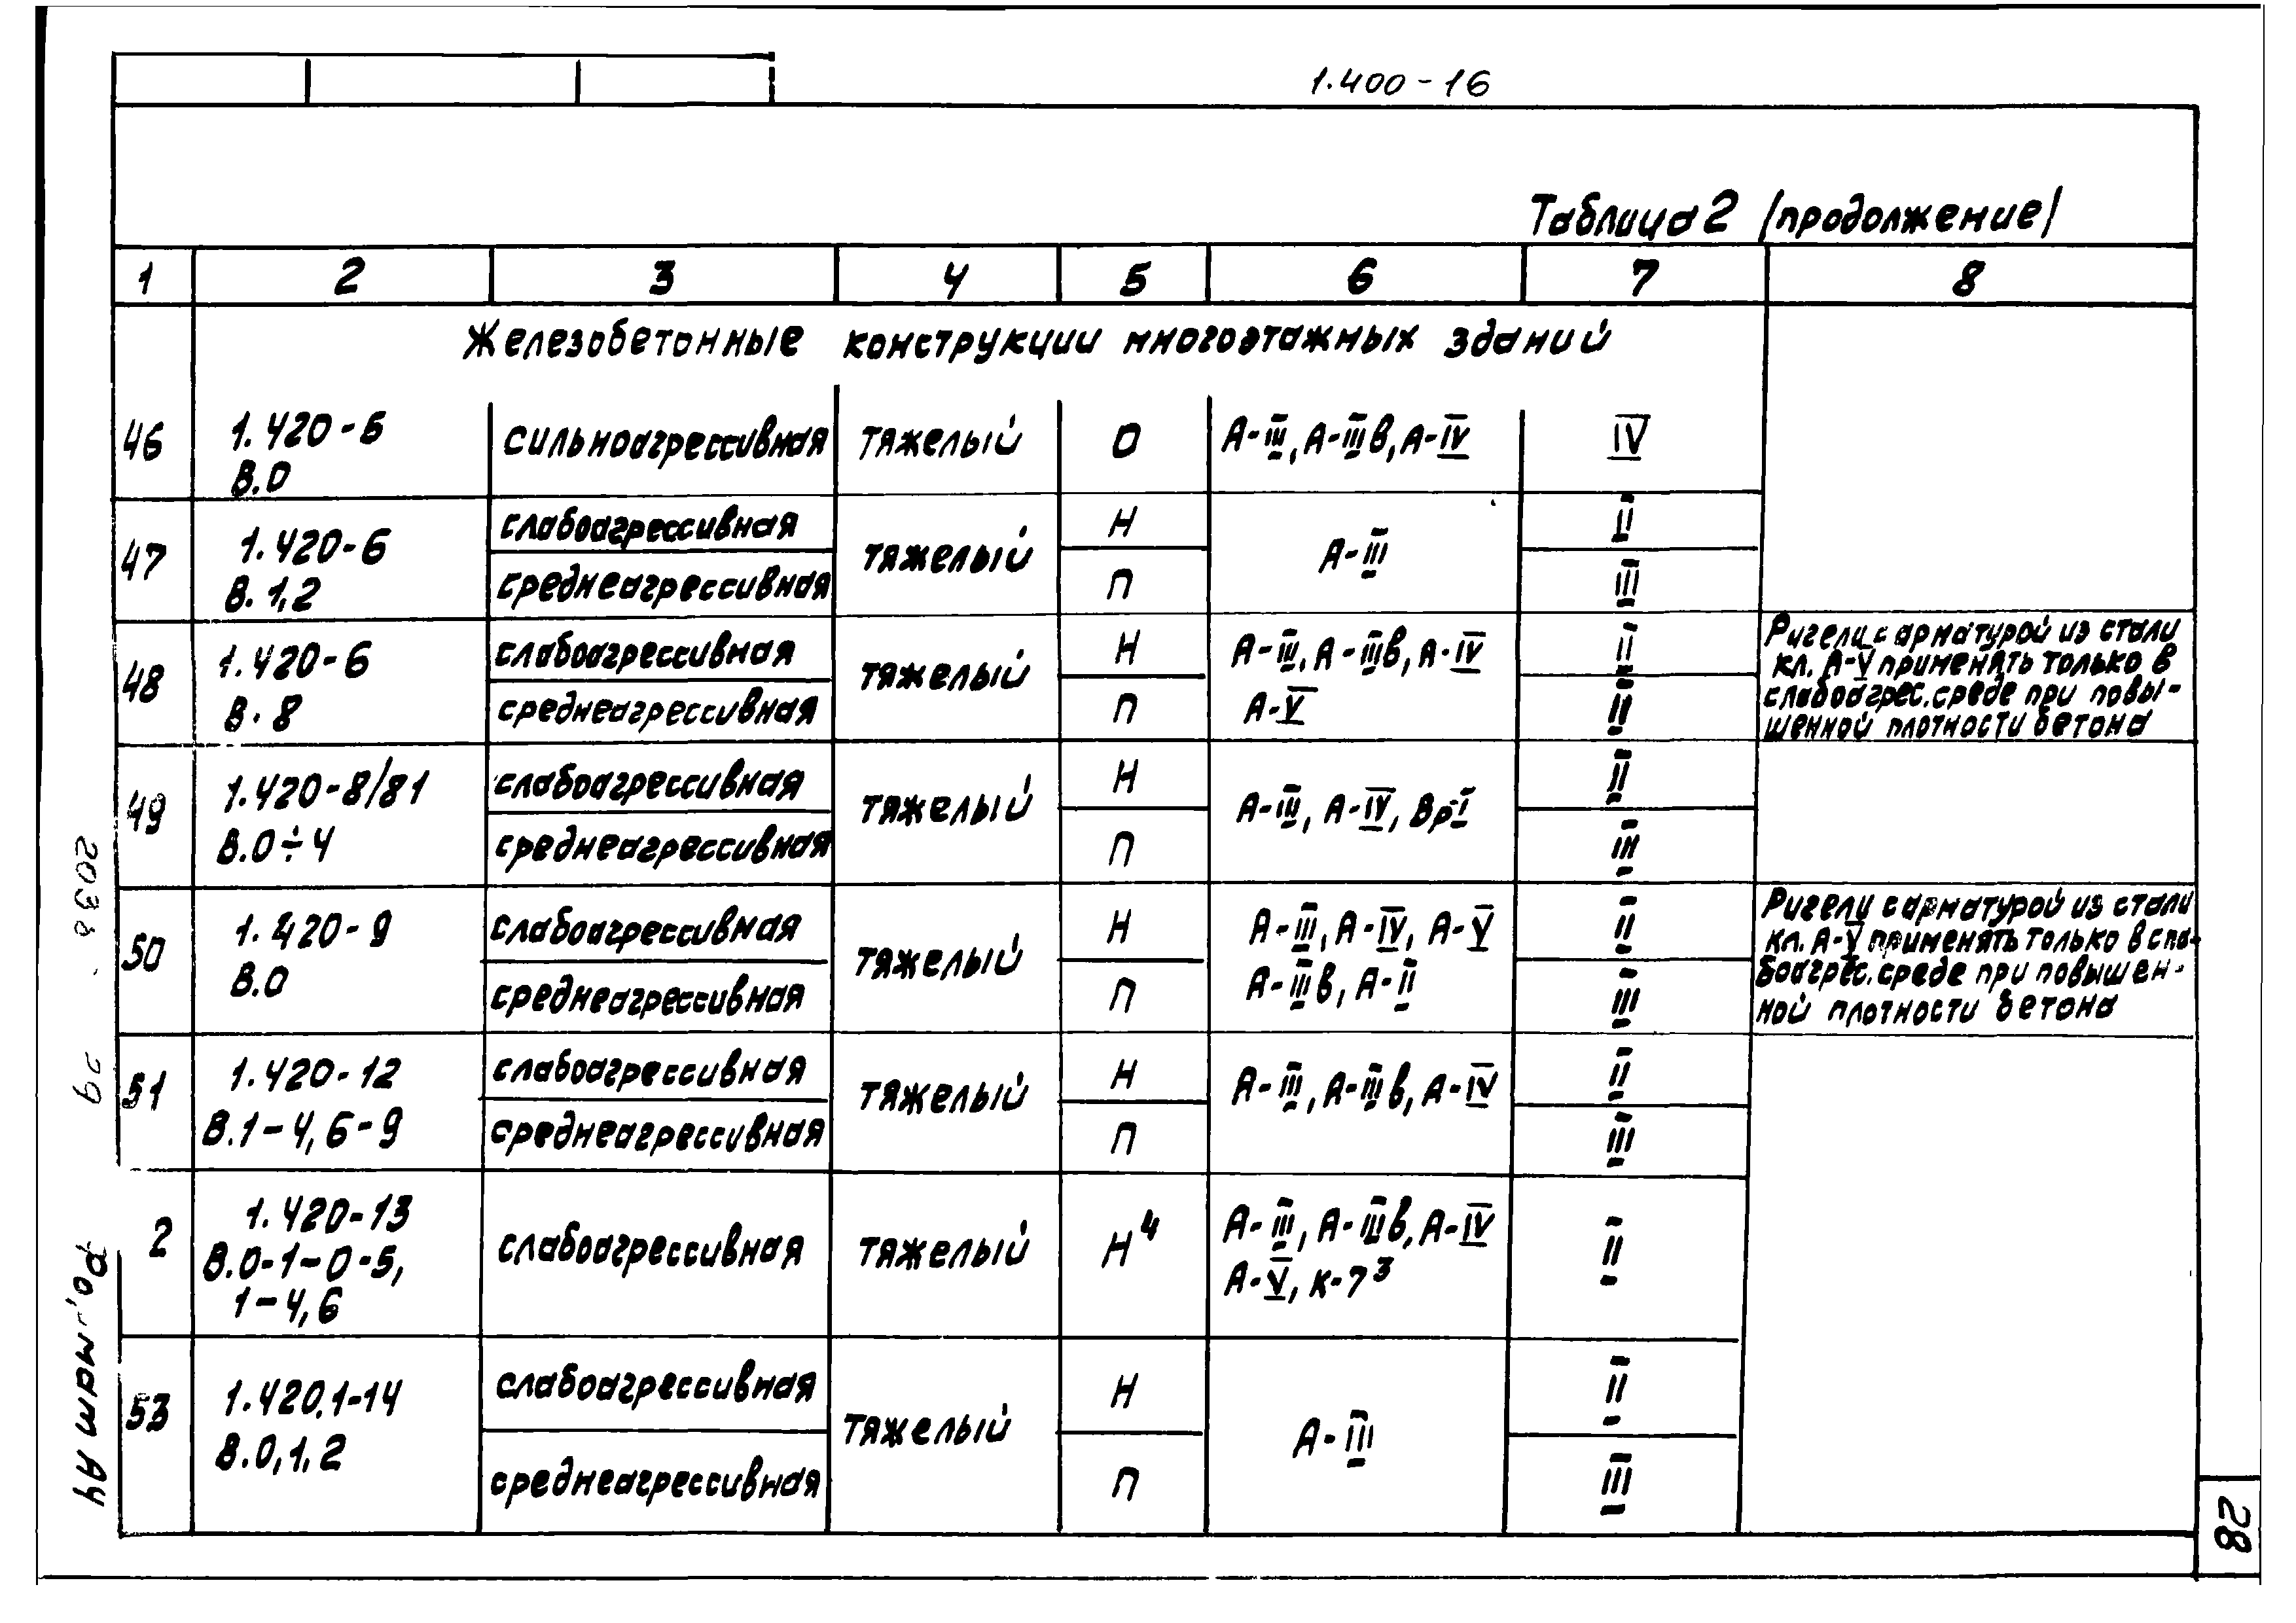 1.400-16
Таблица 2 /продолжение/
1 2 3 4 5 6 7 8
Железобетонные конструкции многоэтажных зданий
46 1.420-6 В.0 сильноагрессивная тяжелый О А-III, А-IIIв, А-IV IV
47 1.420-6 В. 1,2 слабоагрессивная тяжелый Н А-III II
среднеагрессивная П III
48 1.420-6 В. 8 слабоагрессивная тяжелый Н А-III, А-IIIв, А-IV А-V II
среднеагрессивная П
Ригели с арматурой из стали
кл. А-V применять только в
слабоагрес. среде при повы-
шенной плотности бетона
49 1.420-8/81 В.0÷4 слабоагрессивная тяжелый Н А-III, А-IV, Вр-I II
среднеагрессивная П III
50 1.420-9 В.0 слабоагрессивная тяжелый Н А-III, А-IV, А-V А-IIIв, А-II II
среднеагрессивная П III
Ригели с арматурой из стали
кл. А-V применять только в сла-
боагрес. среде при повышен-
ной плотности бетона
51 1.420-12 В.1-4, 6-9 слабоагрессивная тяжелый Н А-III, А-IIIв, А-IV II
среднеагрессивная П III
2 1.420-13 В.0-1-0-5, 1-4,6 слабоагрессивная тяжелый Н⁴ А-III, А-IIIв, А-IV А-V, К-7³ II
53 1.420.1-14 В.0,1,2 слабоагрессивная тяжелый Н А-III II
среднеагрессивная П III
28